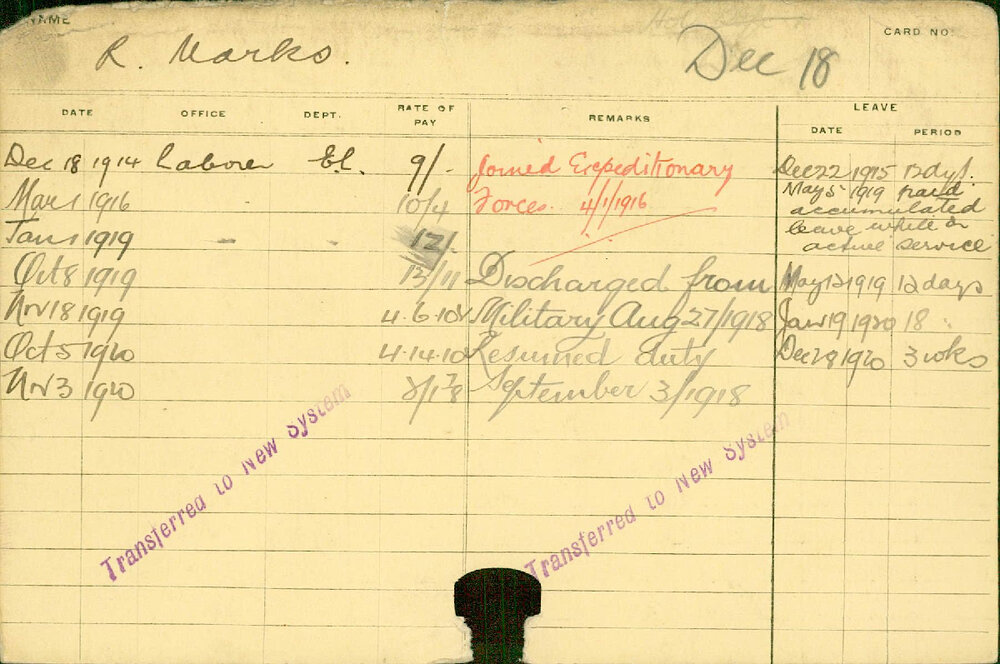 NAME
R. Marks.
Dec 18
CARD NO.
DATE OFFICE DEPT. RATE OF PAY REMARKS LEAVE
DATE PERIOD
Dec 18 1914 Laborer El. 9/- Joined Expeditionary Dec 22 1915 12 dys.
Mar 1 1916 10/4 Forces. 4/1/1916 May 5 1919 paid
accumulated
leave while on
Jan 1 1919 - - 12/- active service
Oct 8 1919 13/11 Discharged from May 12 1919 12 days
Nov 18 1919 4.6.10 Military Aug 27/1918 Jan 19 1920 18
Oct 5 1920 4.14.10 Resumed duty Dec 28 1920 3 wks
Nov 3 1920 September 3/1918
Transferred to New System
Transferred to New System